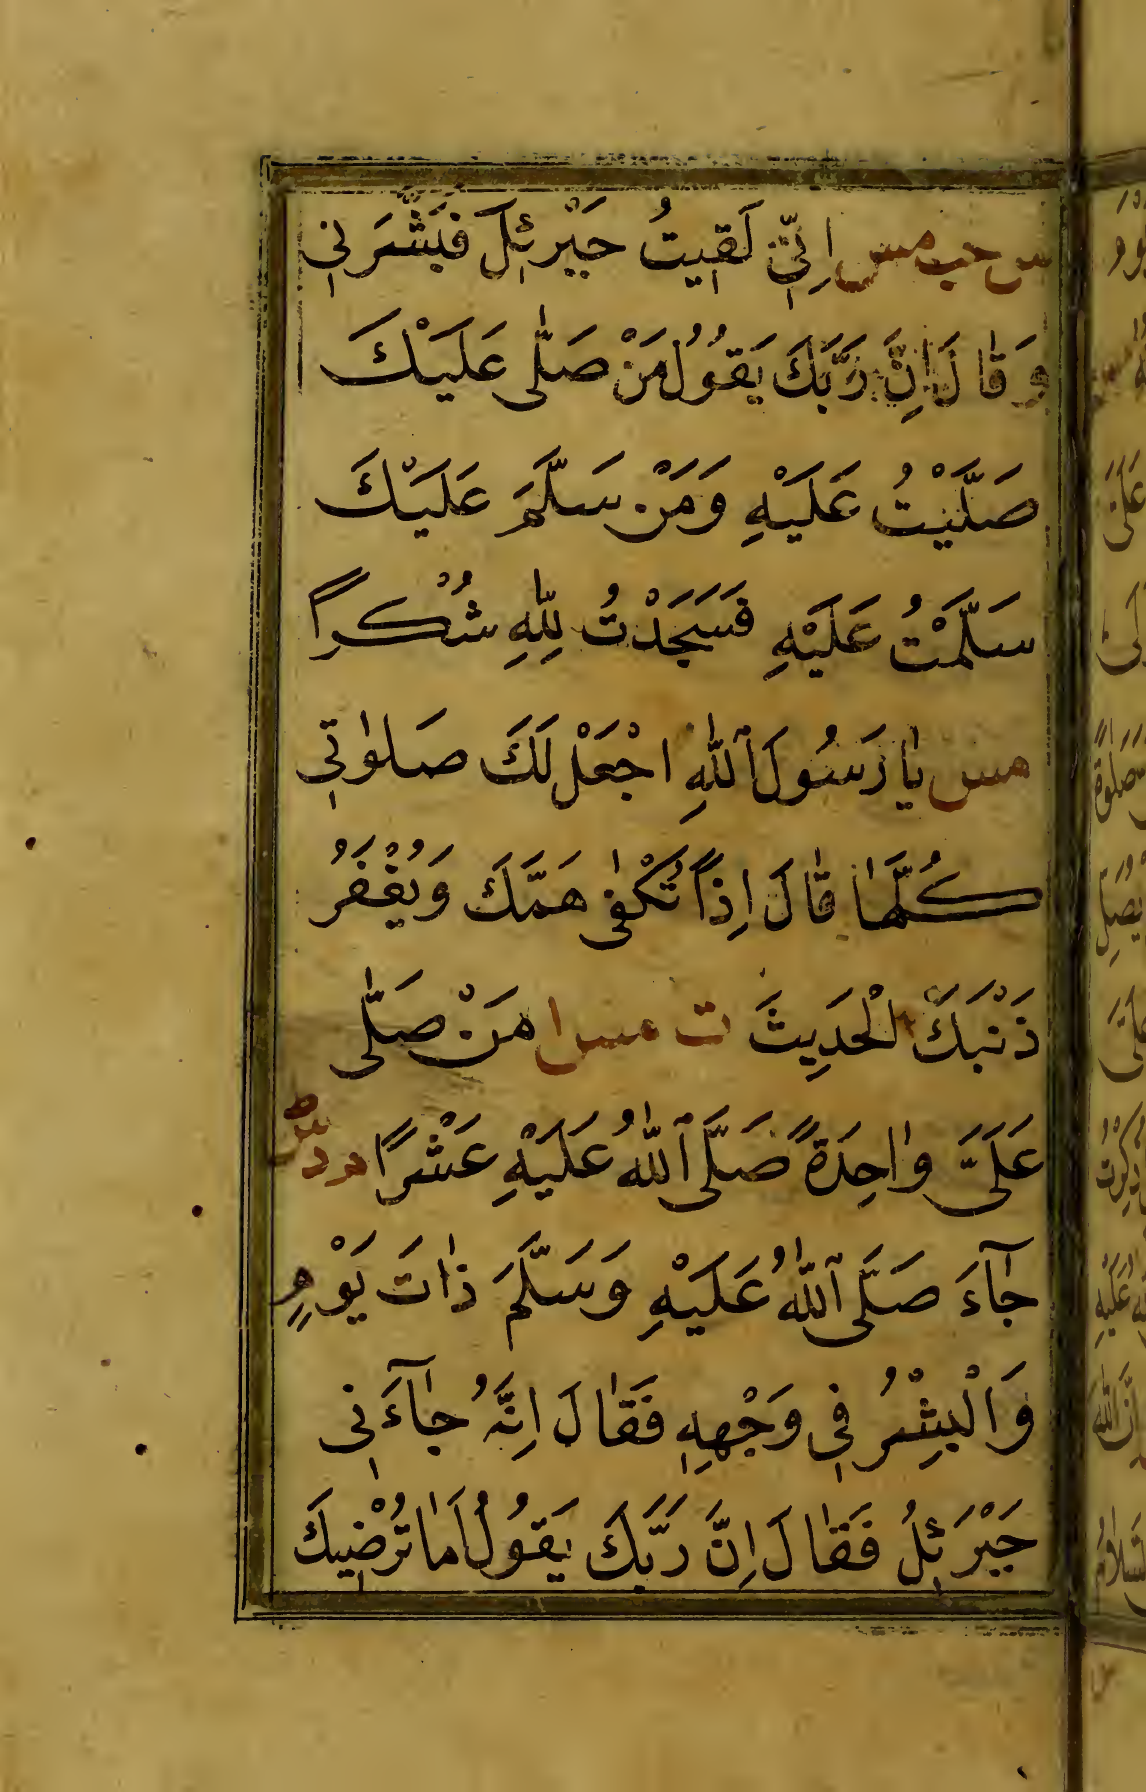 س حب مس اِنِّي لَقِيتُ جَبْرَئِلَ فَبَشَّرَنِي
وَقَالَ اِنَّ رَبَّكَ يَقُولُ مَنْ صَلّٰى عَلَيْكَ
صَلَّيْتُ عَلَيْهِ وَمَنْ سَلَّمَ عَلَيْكَ
سَلَّمْتُ عَلَيْهِ فَسَجَدْتُ لِلّٰهِ شُكْراً
مس يٰا رَسُولَ اللّٰهِ اجْعَلْ لَكَ صَلوٰتِي
كُلَّهٰا قٰالَ اِذاً تُكْفٰى هَمَّكَ وَيُغْفَرُ
ذَنْبَكَ الْحَدِيثَ ت مس ا مَنْ صَلّٰى
عَلَىَّ وٰاحِدَةً صَلَّى اللّٰهُ عَلَيْهِ عَشْرًا م د
جٰآءَ صَلَّى اللّٰهُ عَلَيْهِ وَسَلَّمَ ذٰاتَ يَوْمٍ
وَالْبِشْرُ فِي وَجْهِهِ فَقٰالَ اِنَّهُ جٰآءَنِي
جَبْرَئِلُ فَقٰالَ اِنَّ رَبَّكَ يَقُولُ اَمٰا تُرْضِيكَ